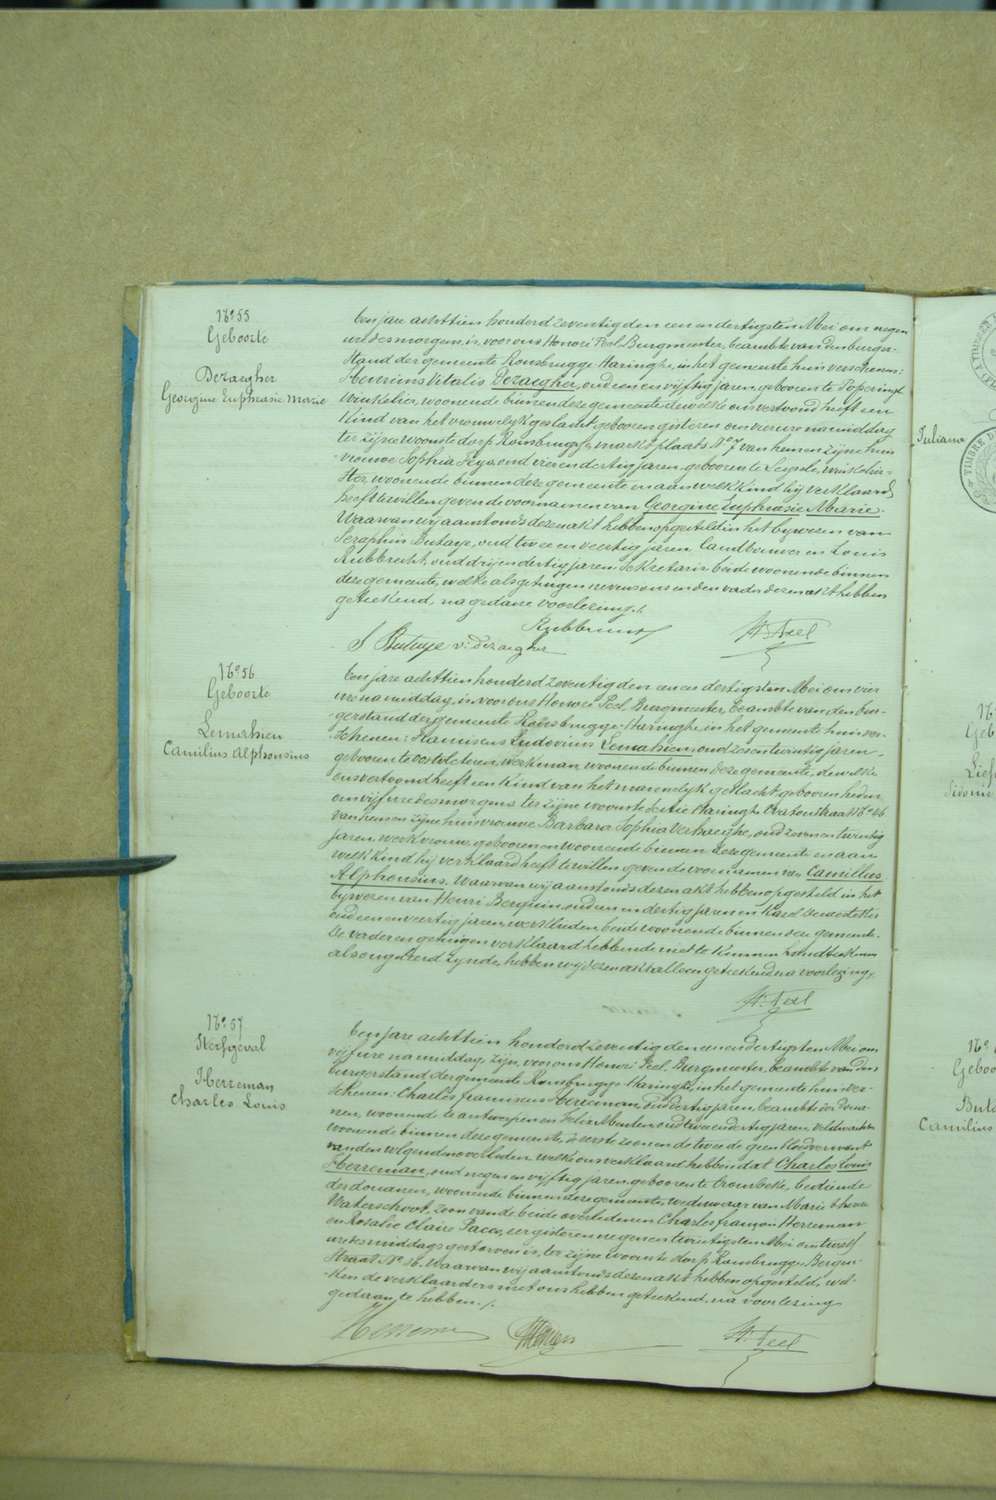 No 55
Geboorte
Dezaegher
Georgine Euphrasie Marie
Ten jare achttien honderd zeventig den een en dertigsten Mei om negen
ure des morgens, is voor ons Honoré Peel Burgmeester, beambte van den burger-
Stand der gemeente Rousbrugge Haringhe, in het gemeente huis verschenen:
Henricus Vitalis Dezaegher, oud een en vijftig jaren, geboren te Poperinge
Winkelier, woonende binnen deze gemeente dewelke ons vertoond heeft een
Kind van het vrouwelyk geslacht geboren gisteren om vier ure namiddag
ter zijne woonste dorp Rousbrugge, marktplaats No 7 van hem en zijne huis-
vrouwe Sophia Feys, oud vier en dertig jaren, geboren te Leysele, Winkelie-
ster, woonende binnen deze gemeente en aan welk kind hij verklaard
heeft te willen geven de voornamen van Georgine Euphrasie Marie.
Waarvan wij aanstonds deze nakt hebben opgesteld in het bijwezen van
Seraphin Butaye, oud twee en veertig jaren, landbouwer en Louis
Rubbrecht, oud drij en dertig jaren Sekretaris beide woonende binnen
deze gemeente, welke als getuigen nevens ons en den vader deze nakt hebben
geteekend, na gedane voorlezing.
Rubbrecht
H. Peel
S Butaye v. Dezaegher
No 56
Geboorte
Lemahieu
Camilius Alphonsius
Ten jare achttien honderd zeventig den een en dertigsten Mei om vier
ure namiddag, is voor ons Honoré Peel, Burgmeester, beambte van den bur-
gerstand der gemeente Rousbrugge-Haringhe, in het gemeente huis ver-
schenen: Franciscus Ludovicus Lemahieu, oud zes en twintig jaren,
geboren te Westvleteren, werkman, woonende binnen deze gemeente, dewelke
ons vertoond heeft een Kind van het mannelijk geslacht geboren heden
om vijf ure des morgens ter zijne woonste Sectie Haringhe No 46
van hem en zijne huisvrouwe Barbara Sophia Verhaeghe, oud zeven en twintig
jaren, werkvrouw, geboren en woonende binnen deze gemeente en aan
welk kind hij verklaard heeft te willen geven de voornamen van Camillus
Alphonsius. Waarvan wij aanstonds deze nakt hebben opgesteld in het
bijwezen van Henri Berquin, oud en dertig jaren en Karel
oud een en veertig jaren, werklieden, beide woonende binnen deze gemeente.
De vader en getuigen verklaard hebbende niet te kunnen handteekenen
als ongeleerd zijnde, hebben wij deze nakt alleen geteekend na voorlezing.
H. Peel
No 57
Sterfgeval
Herreman
Charles Louis
Ten jare achttien honderd zeventig den een en dertigsten Mei om
vijf ure namiddag, zijn voor ons Honoré Peel, Burgmeester, beambte van den
burgerstand der gemeente Rousbrugge Haringhe, in het gemeente huis ver-
schenen: Charles franciscus Herreman, oud dertig jaren, beambte der doua-
nen, woonende te antwerpen en Felix oud twee en dertig jaren, veldwachter
woonende binnen deze gemeente, de eerste zoon en de tweede geen bloedverwant
van den volgenden overleden welke ons verklaard hebben dat Charles Louis
Herreman, oud negen en vijftig jaren, geboren te Crombeke, bediende
der douanen, woonende binnen deze gemeente, weduwaar van Marie therese
Waterschoot, zoon van de beide overledenen Charles françois Herreman
en Rosalie Claire Pacco, eergisteren negen en twintigsten Mei om twaalf
ure smiddags gestorven is, ter zijne woonste dorp Rousbrugge Bergen-
Straat No 16. Waarvan wij aanstonds deze nakt hebben opgesteld, wel-
ken de verklaarders met ons hebben geteekend, na voorlezing
gedaan te hebben.
Herreman
H. Peel
Juliana
TIMBRE
Camilius